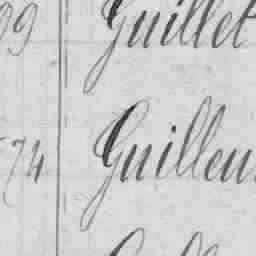 99 Guillet
74 Guilleu